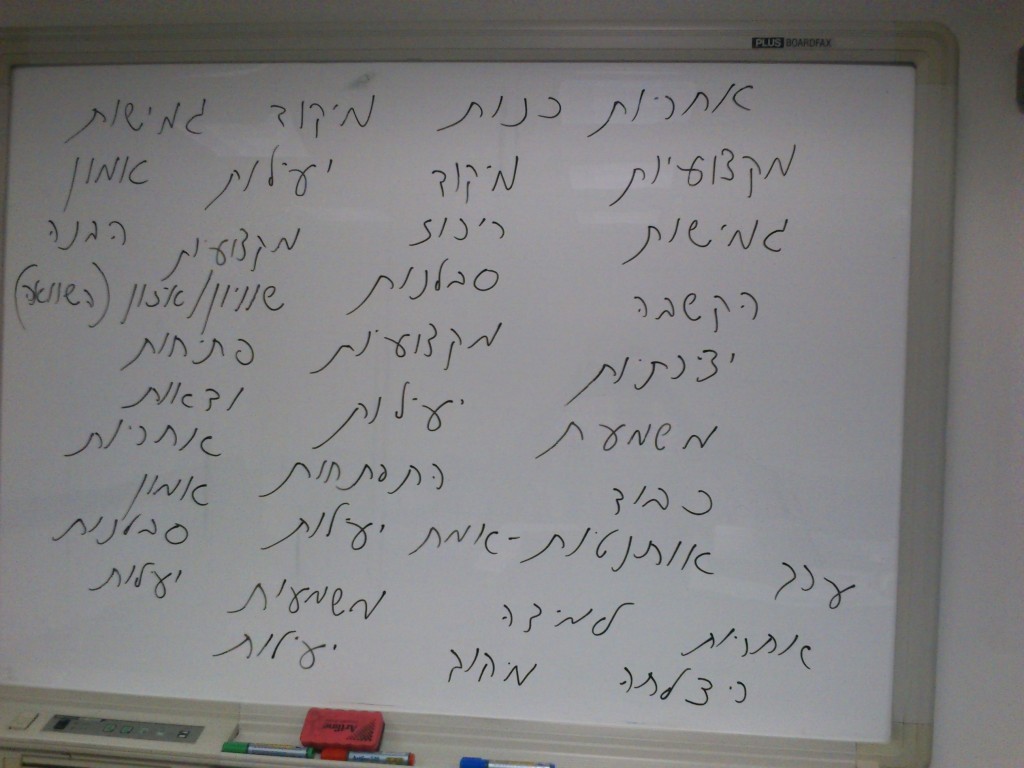 PLUS BOARDFAX
אחריות כנות מיקוד גמישות
מקצועיות מיקוד יעילות אמון
גמישות ריכוז מקצועיות הבנה
הקשבה סבלנות שוויון/איזון (השוואה)
יצירתיות מקצועיות פתיחות
משמעת יעילות ודאות
כבוד התפתחות אחריות
אמון
ערך אותנטיות-אמת יעילות סבלנות
אחריות למידה משמעית יעלות
הצלחה מיקוד יעילות
Artline